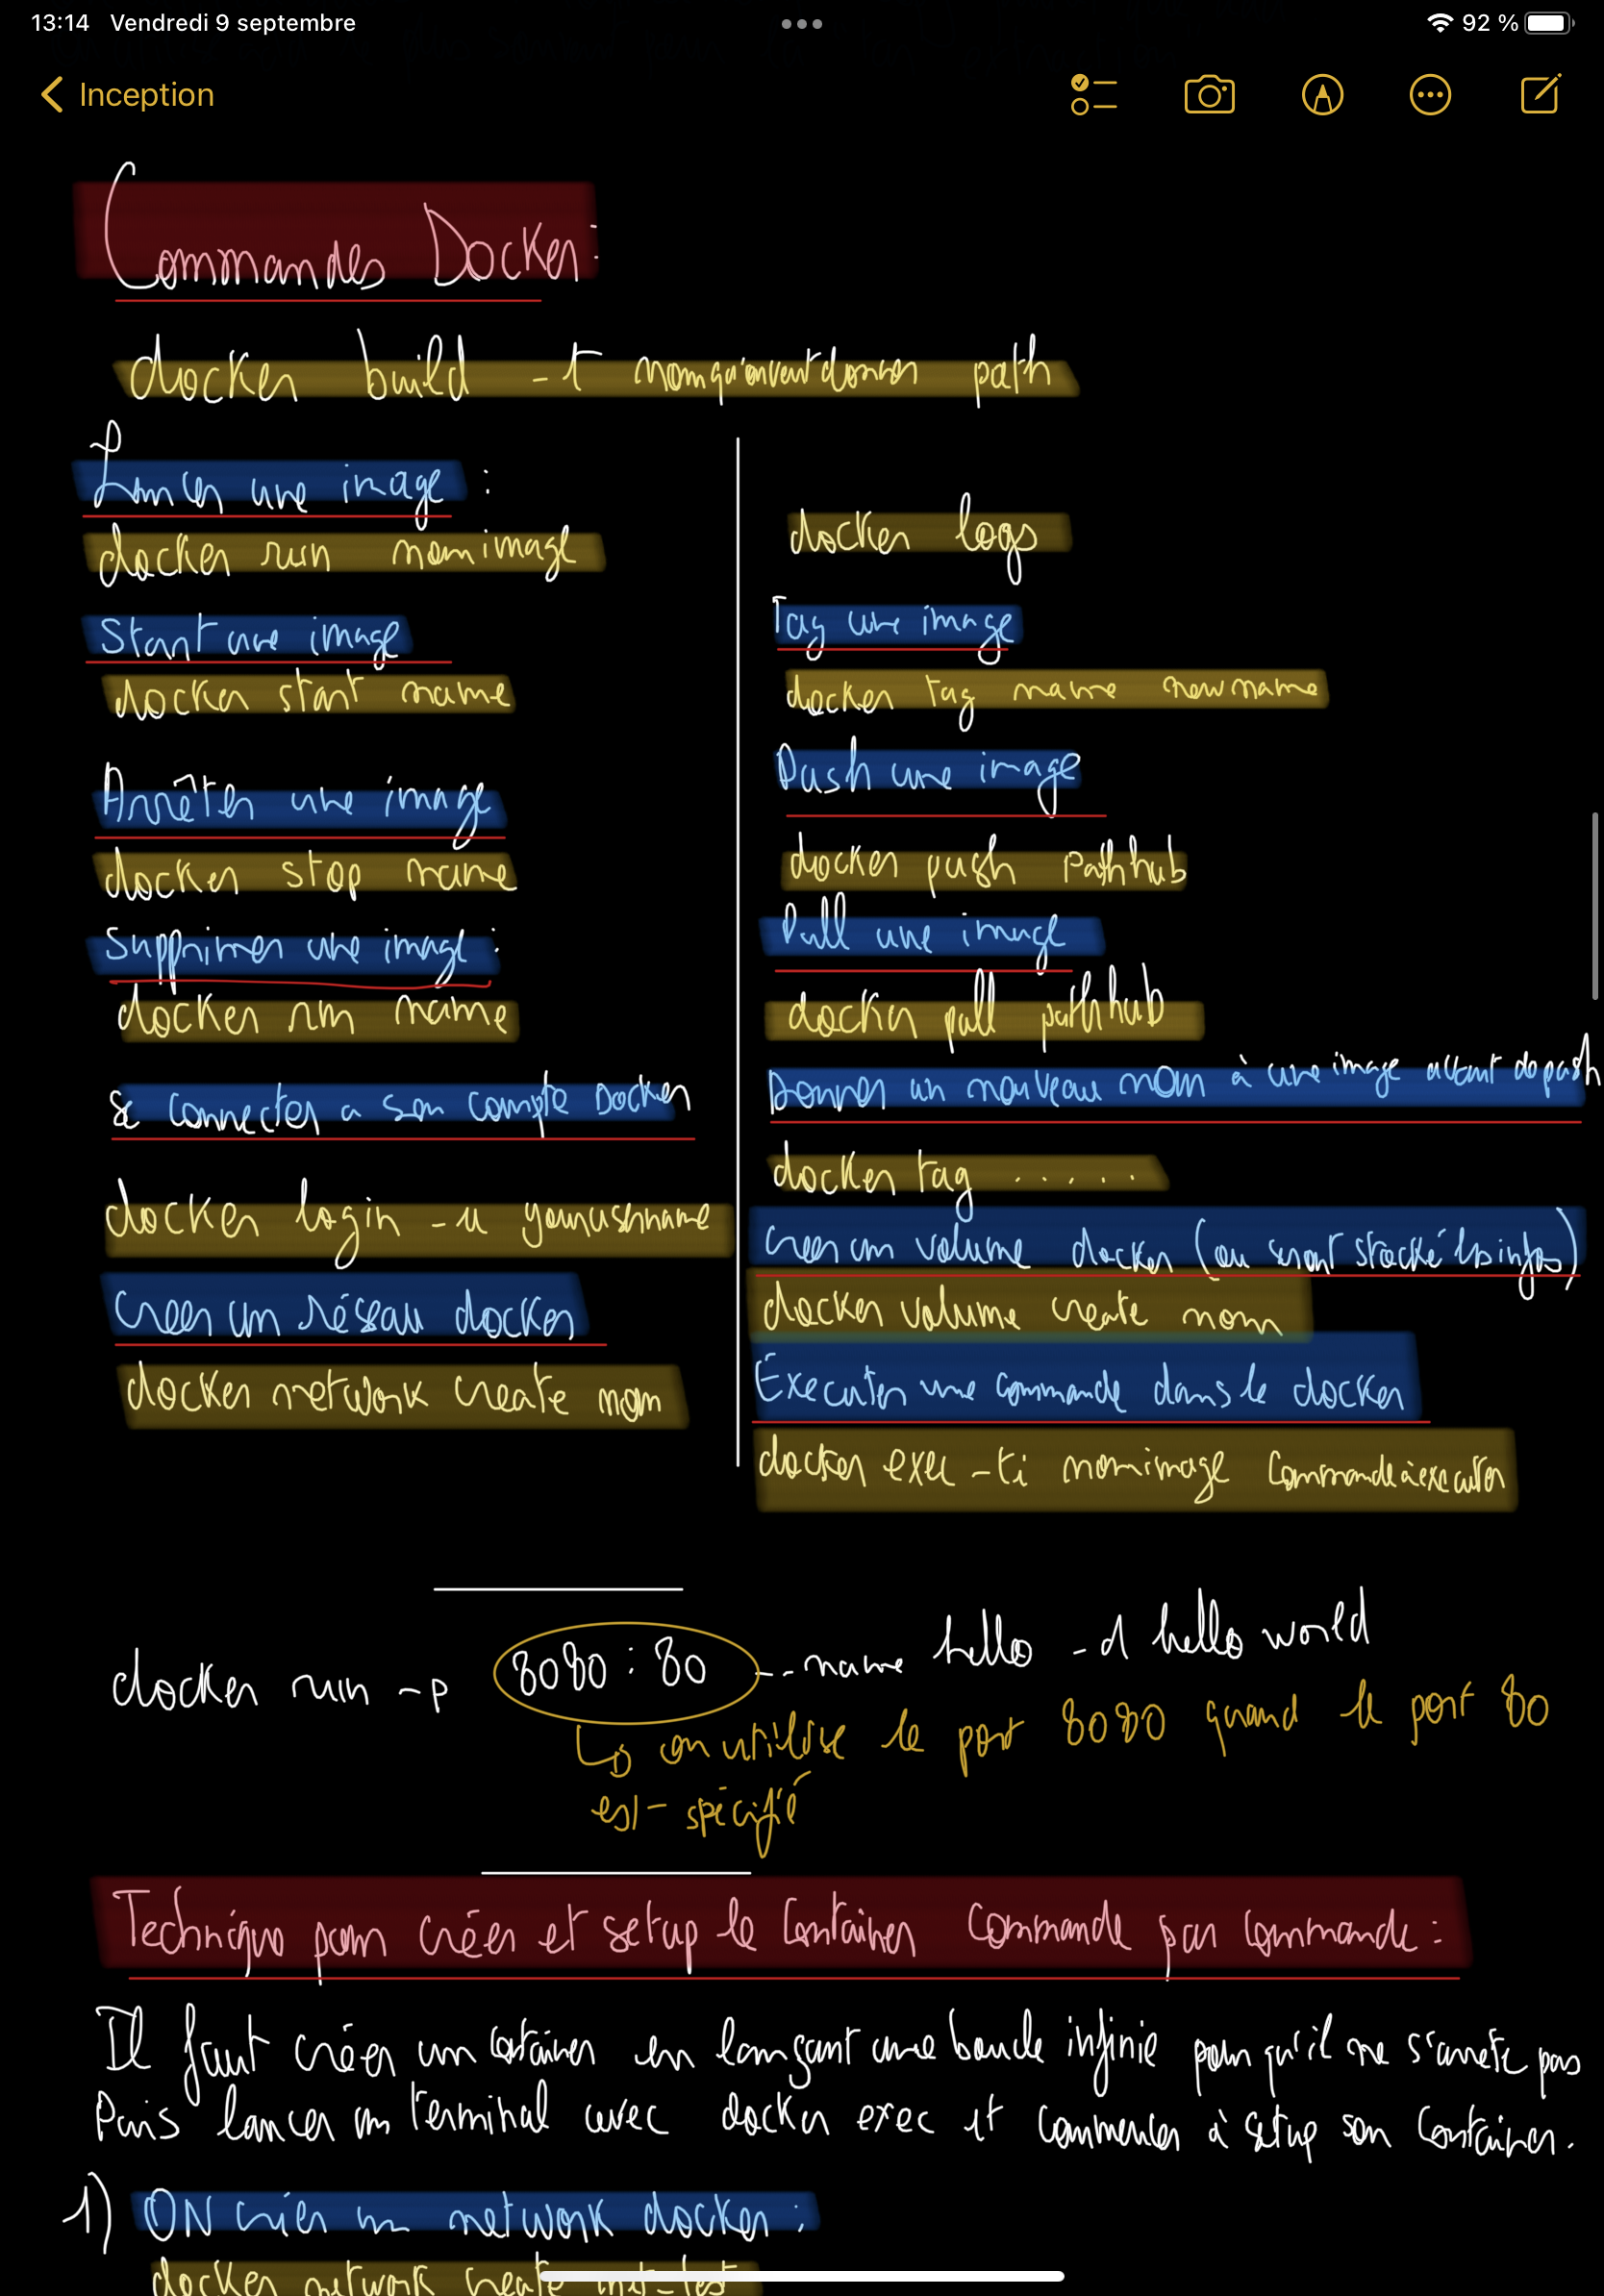 13:14 Vendredi 9 septembre
92 %
Inception
Commandes Docker :
docker build -t nomqu'onveutdonner path
Lancer une image :
docker run nomimage
Start une image
docker start name
Arrêter une image
docker stop name
Supprimer une image :
docker rm name
se connecter a son compte Docker
docker login -u yourusername
Creer un réseau docker
docker network create nom
docker logs
Tag une image
docker tag name newname
Push une image
docker push pathhub
Pull une image
docker pull pathhub
Donner un nouveau nom à une image avant de push
docker tag ......
Creer un volume docker (ou seront stocké les infos)
docker volume create nom
Executer une commande dans le docker
docker exec -ti nomimage commandeàexecuter
docker run -p 8080:80 --name hello -d hello world
↳ on utilise le port 8080 quand le port 80
est spécifié
Technique pour créer et setup le container commande par commande :
Il faut créer un container en lançant une boucle infinie pour qu'il ne s'arrete pas
Puis lancer un terminal avec docker exec et commencer à setup son container.
1) ON créer un network docker :
docker network create